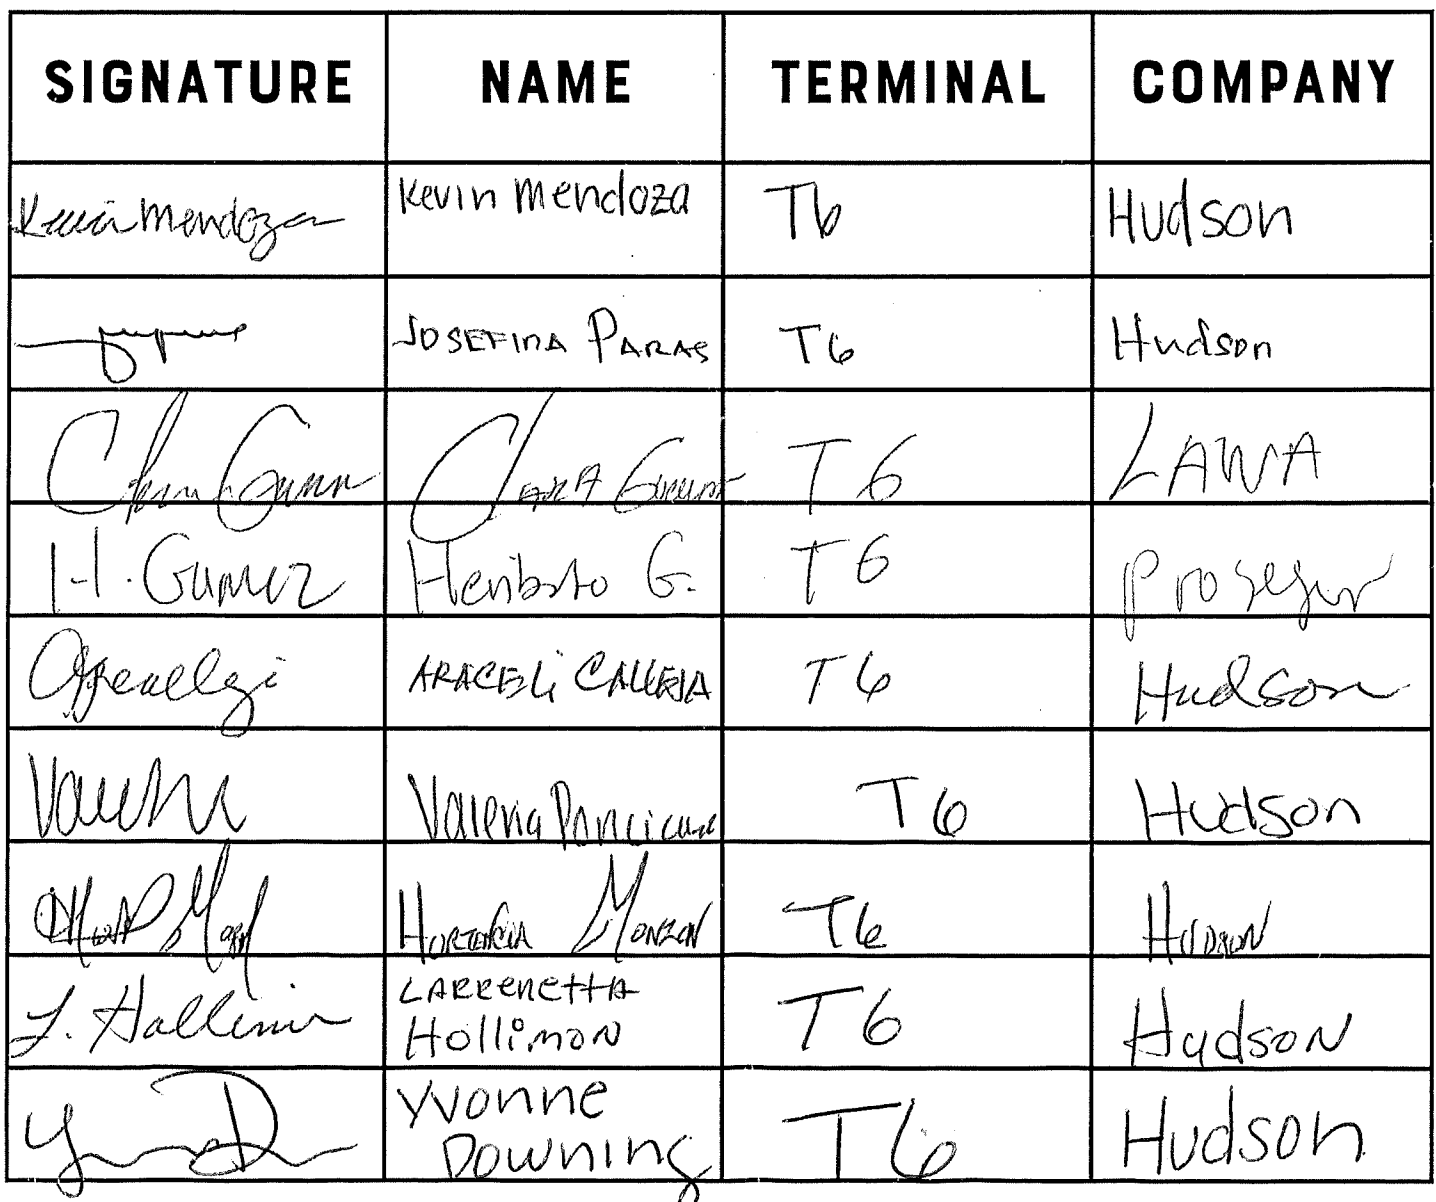 SIGNATURE NAME TERMINAL COMPANY
Kevin Mendoza Kevin Mendoza T6 Hudson
JOSEFINA PARAS T6 Hudson
CLARA T6 LAWA
H. Gomez Heriberto G. T6 Prosegur
ARACELi CALLEJA T6 Hudson
Valeria T6 Hudson
HORTENCIA MONZON T6 HUDSON
L. LARRENETTA
Hollimon T6 Hudson
Yvonne
Downing T6 Hudson